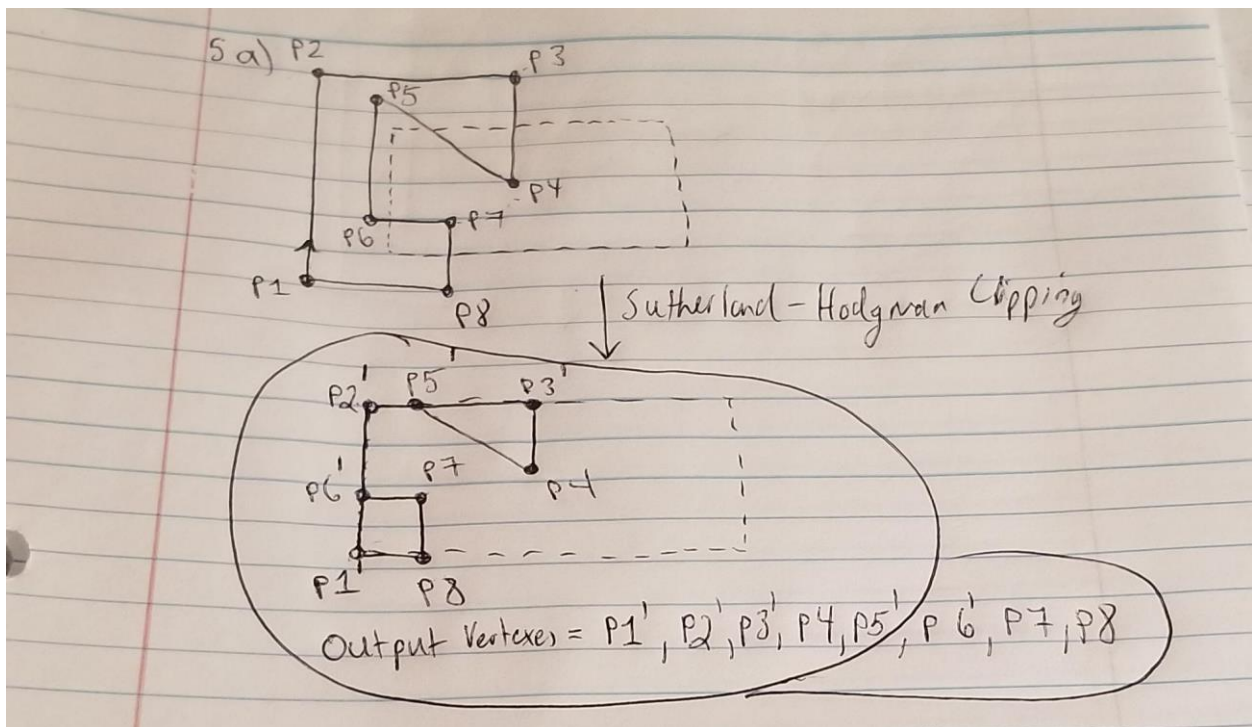 5a) P2
P3
P5
P4
P6
P7
P1
P8
Sutherland-Hodgman Clipping
P2'
P5'
P3'
P6'
P7
P4
P1'
P8
Output Vertexes = P1', P2', P3', P4, P5', P6', P7, P8